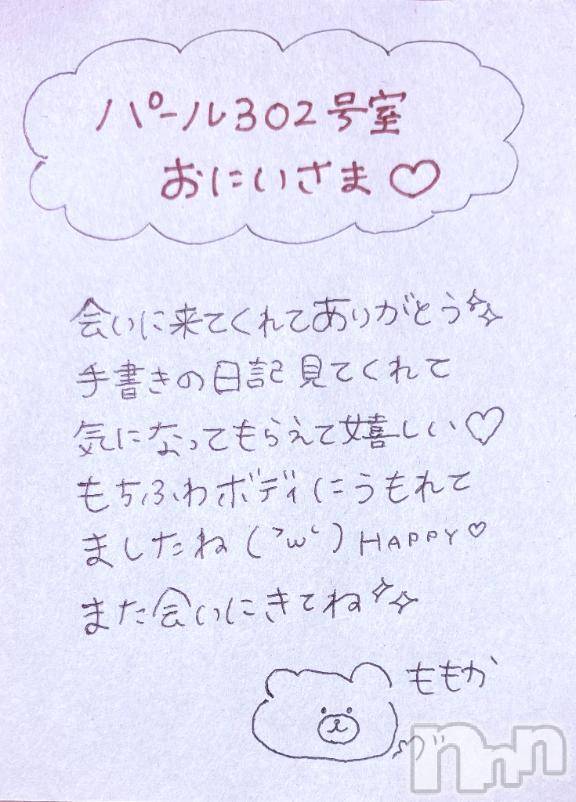 パール302号室
おにいさま♡
会いに来てくれてありがとう✨
手書きの日記見てくれて
気になってもらえて嬉しい♡
もちふわボディにうもれて
ましたね(´ω`)HAPPY♡
また会いにきてね✨
ももか
nnn